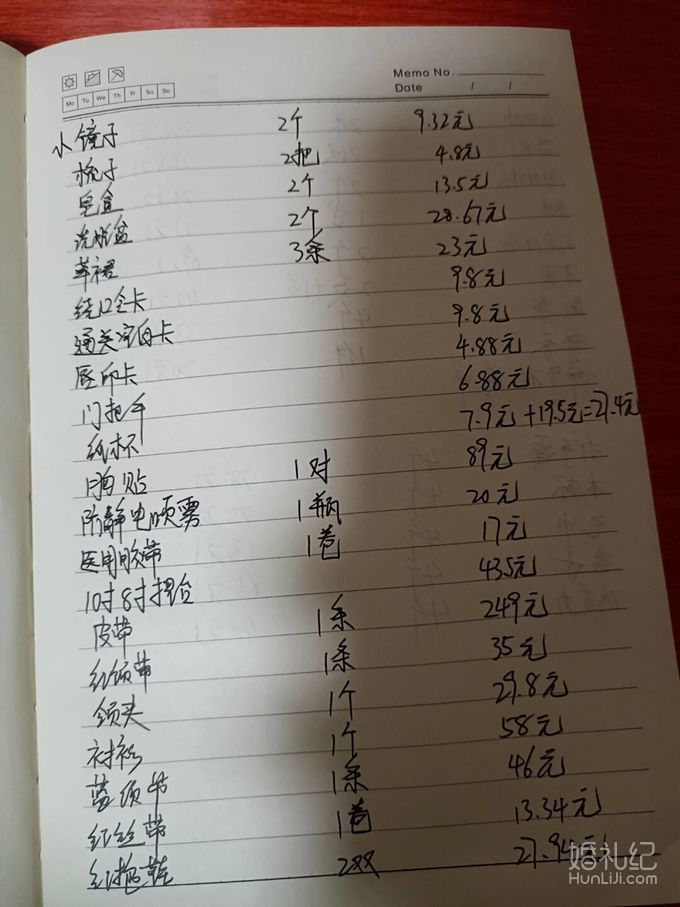 Memo No.
Mo Tu We Th Fr Sa Su
Date / /
小镜子 2个 9.32元
梳子 2把 4.8元
皂盒 2个 13.5元
洗脸盆 2个 28.67元
苹裙 3条 23元
绕口令卡 9.8元
通关空白卡 9.8元
唇印卡 4.88元
门把手 6.88元
纸杯 7.9元+19.5元=27.4元
胸贴 1对 89元
防静电喷雾 1瓶 20元
医用胶带 1卷 17元
10寸8寸摆台 435元
皮带 1条 249元
红领带 1条 35元
领夹 1个 29.8元
衬衫 1个 58元
蓝领带 1条 46元
红丝带 1卷 13.34元
红拖鞋 2双 27.94元
婚礼纪
HunLiJi.com